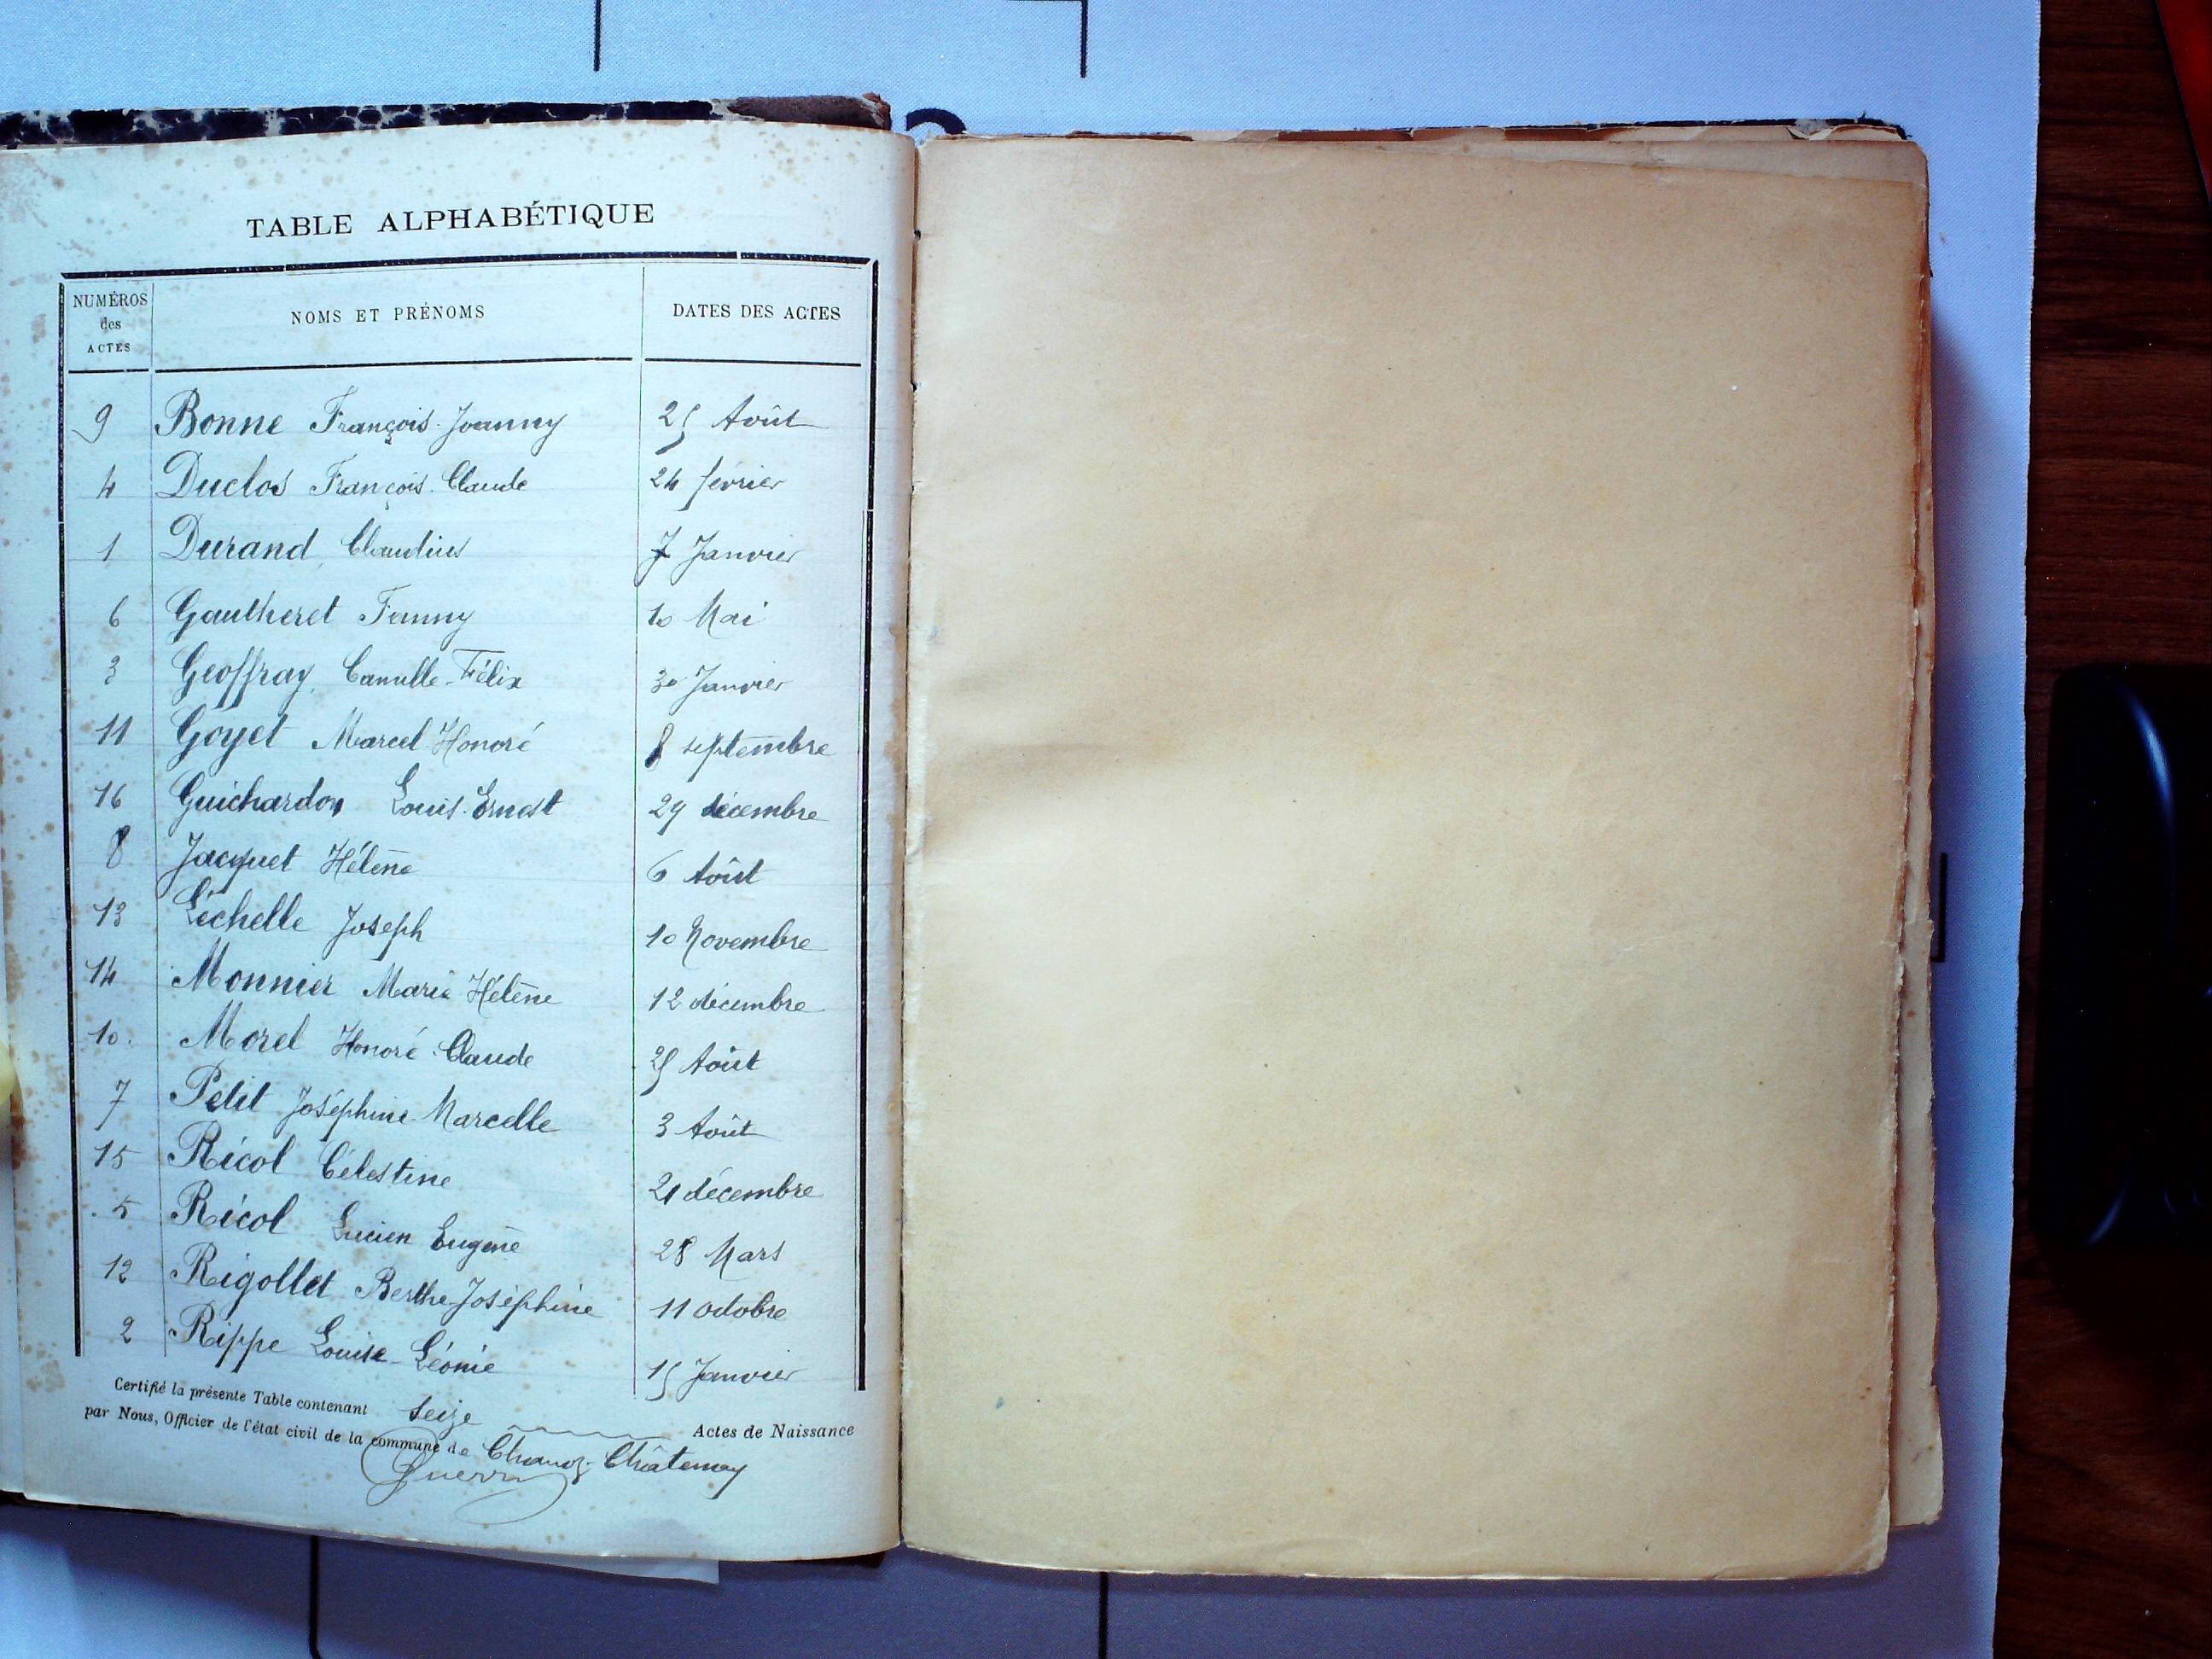 TABLE ALPHABÉTIQUE
NUMÉROS des ACTES NOMS ET PRÉNOMS DATES DES ACTES
9 Bonne François-Joanny 25 Août
4 Duclos François-Claude 24 février
1 Durand, Claudius 7 Janvier
6 Gautheret Fanny 10 Mai
3 Geoffray, Camille-Félix 30 Janvier
11 Goyet Marcel Honoré 8 septembre
16 Guichardon Louis-Ernest 29 décembre
8 Jacquet Hélène 6 Août
13 Léchelle Joseph 10 Novembre
14 Monnier Marie Hélène 12 décembre
10 Morel Honoré-Claude 25 Août
7 Petit Joséphine-Marcelle 3 Août
15 Ricol Célestine 21 décembre
5 Ricol Lucien Eugène 28 Mars
12 Rigollet Berthe-Joséphine 11 octobre
2 Rippe Louise-Léonie 15 Janvier
Certifié la présente Table contenant seize Actes de Naissance
par Nous, Officier de l'état civil de la commune de Chanoz-Châtenay